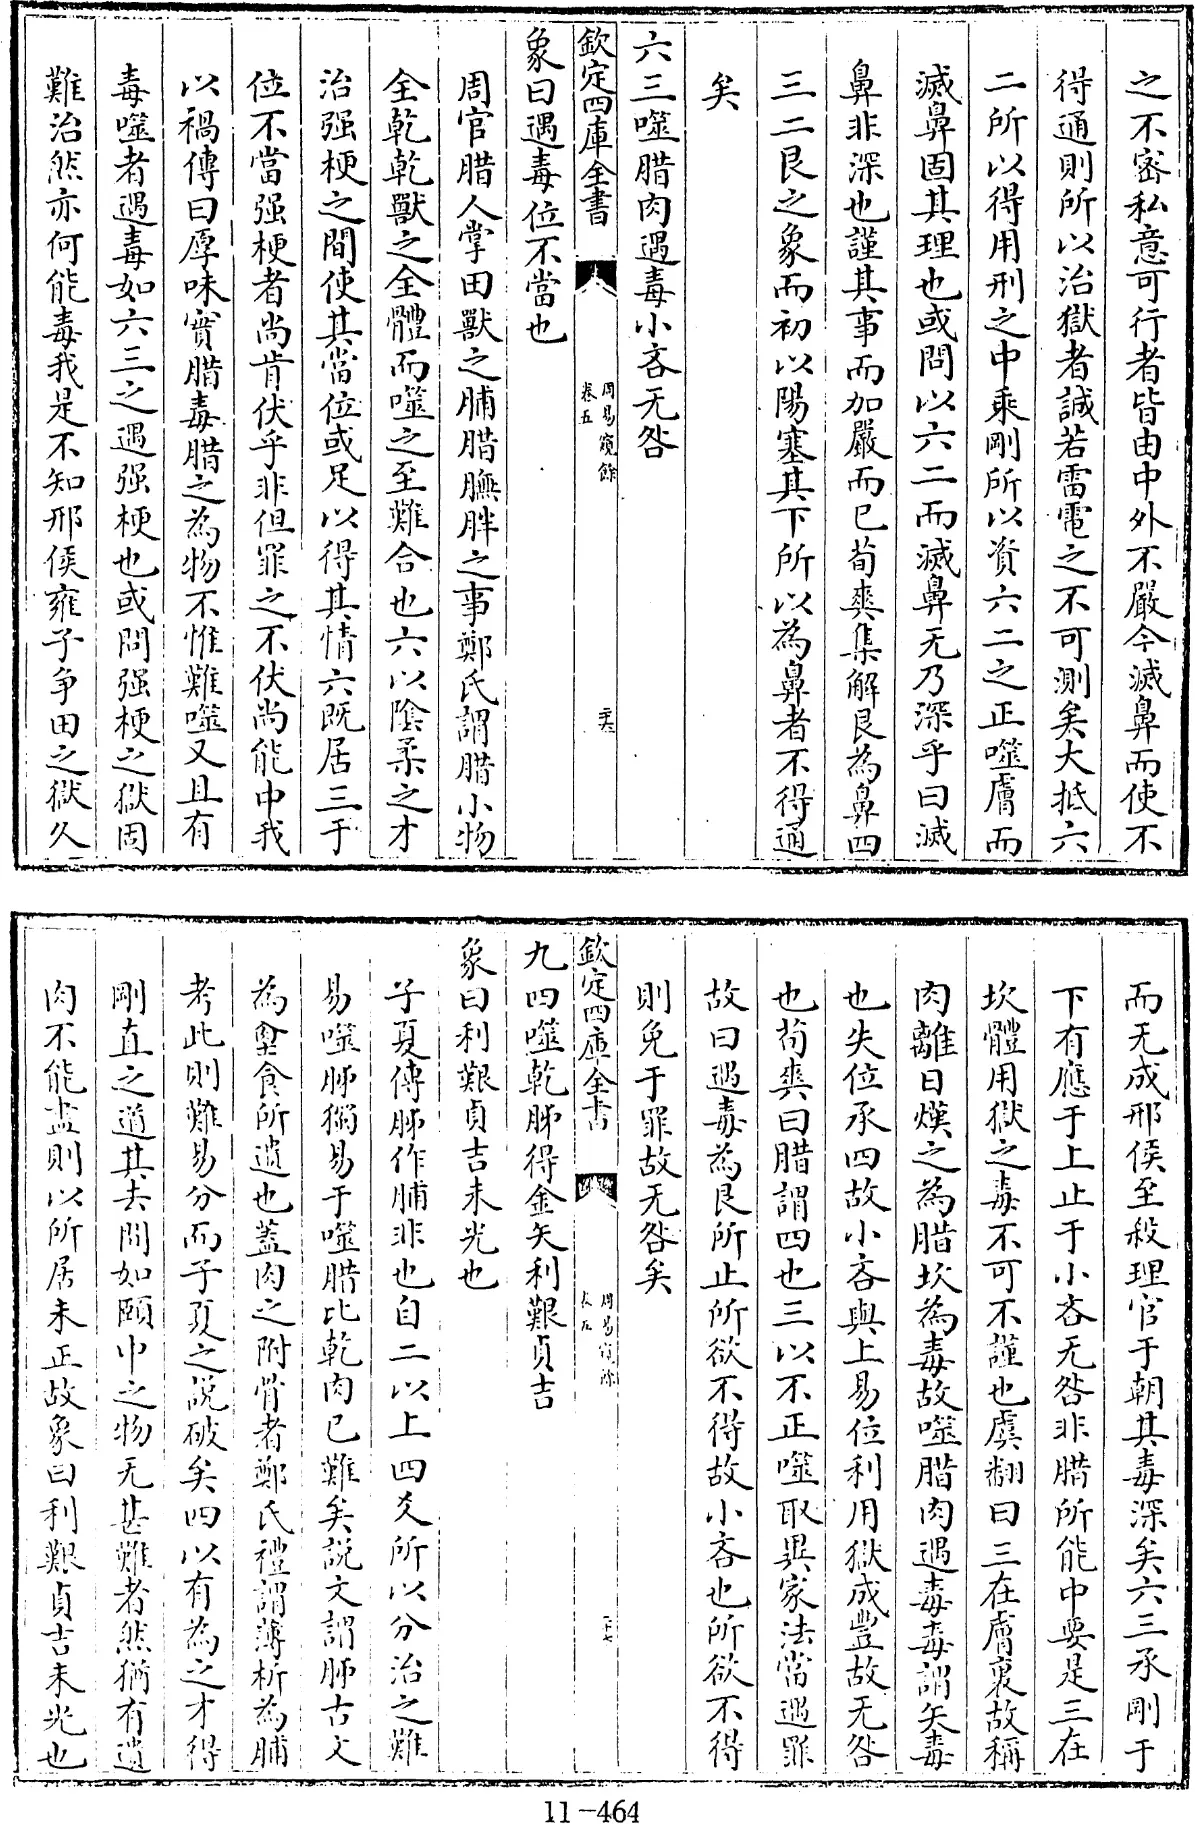 之不密私意可行者皆由中外不嚴今滅鼻而使不
得通則所以治獄者誠若雷電之不可測矣大抵六
二所以得用刑之中乘剛所以資六二之正噬膚而
滅鼻固其理也或問以六二而滅鼻无乃深乎曰滅
鼻非深也謹其事而加嚴而已荀爽集解艮為鼻四
三二艮之象而初以陽塞其下所以為鼻者不得通
矣
六三噬腊肉遇毒小吝无咎
欽定四庫全書
周易窺餘
卷五
二十六
象曰遇毒位不當也
周官腊人掌田獸之脯腊膴胖之事鄭氏謂腊小物
全乾乾獸之全體而噬之至難合也六以陰柔之才
治强梗之間使其當位或足以得其情六既居三于
位不當强梗者尚肯伏乎非但罪之不伏尚能中我
以禍傳曰厚味實腊毒腊之為物不惟難噬又且有
毒噬者遇毒如六三之遇强梗也或問强梗之獄固
難治然亦何能毒我是不知邢侯雍子争田之獄久
而无成邢侯至殺理官于朝其毒深矣六三承剛于
下有應于上止于小吝无咎非腊所能中要是三在
坎體用獄之毒不可不謹也虞翻曰三在膚裏故稱
肉離日熯之為腊坎為毒故噬腊肉遇毒毒謂矢毒
也失位承四故小吝與上易位利用獄成豐故无咎
也荀爽曰腊謂四也三以不正噬取異家法當遇罪
故曰遇毒為艮所止所欲不得故小吝也所欲不得
則免于罪故无咎矣
欽定四庫全書
周易窺餘
卷五
二十七
九四噬乾胏得金矢利艱貞吉
象曰利艱貞吉未光也
子夏傳胏作脯非也自二以上四爻所以分治之難
易噬胏獨易于噬腊比乾肉已難矣說文謂胏古文
為㚇食所遺也蓋肉之附骨者鄭氏禮謂薄析為脯
考此則難易分而子夏之說破矣四以有為之才得
剛直之道其去間如頤中之物无甚難者然猶有遺
肉不能盡則以所居未正故象曰利艱貞吉未光也
11-464